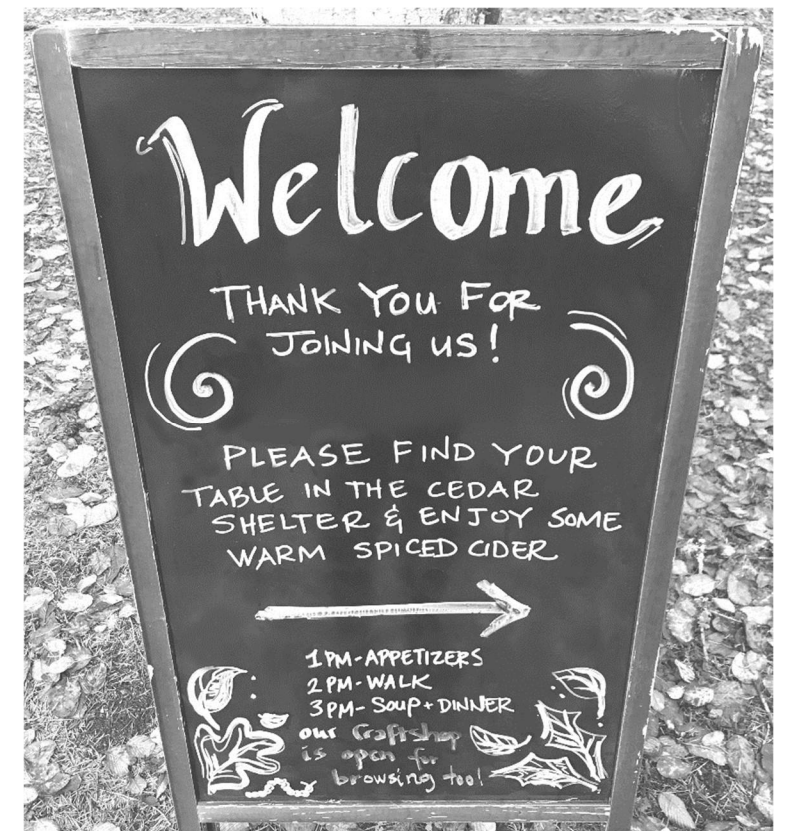 Welcome
THANK YOU FOR
JOINING US!
PLEASE FIND YOUR
TABLE IN THE CEDAR
SHELTER & ENJOY SOME
WARM SPICED CIDER
1PM-APPETIZERS
2PM-WALK
3PM-SOUP+DINNER
our Craftshop
is open for
browsing too!